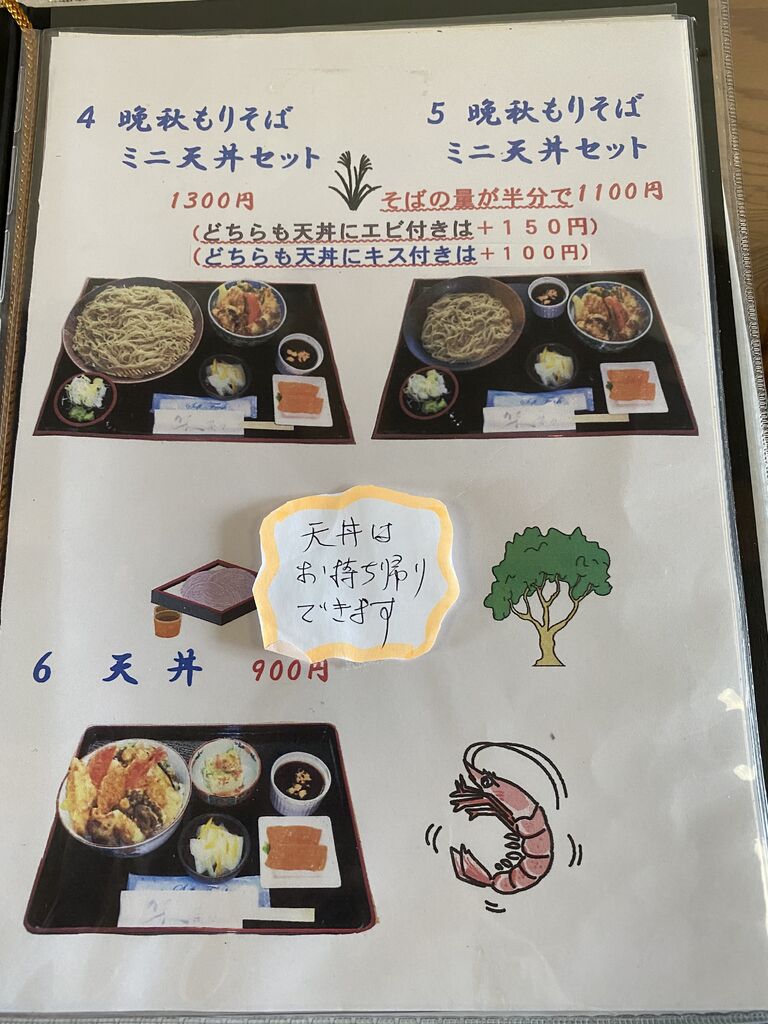 4 晩秋もりそば
ミニ天丼セット
1300円
5 晩秋もりそば
ミニ天丼セット
そばの量が半分で1100円
(どちらも天丼にエビ付きは＋１５０円)
(どちらも天丼にキス付きは＋１００円)
天丼は
お持ち帰り
できます
6 天丼 900円